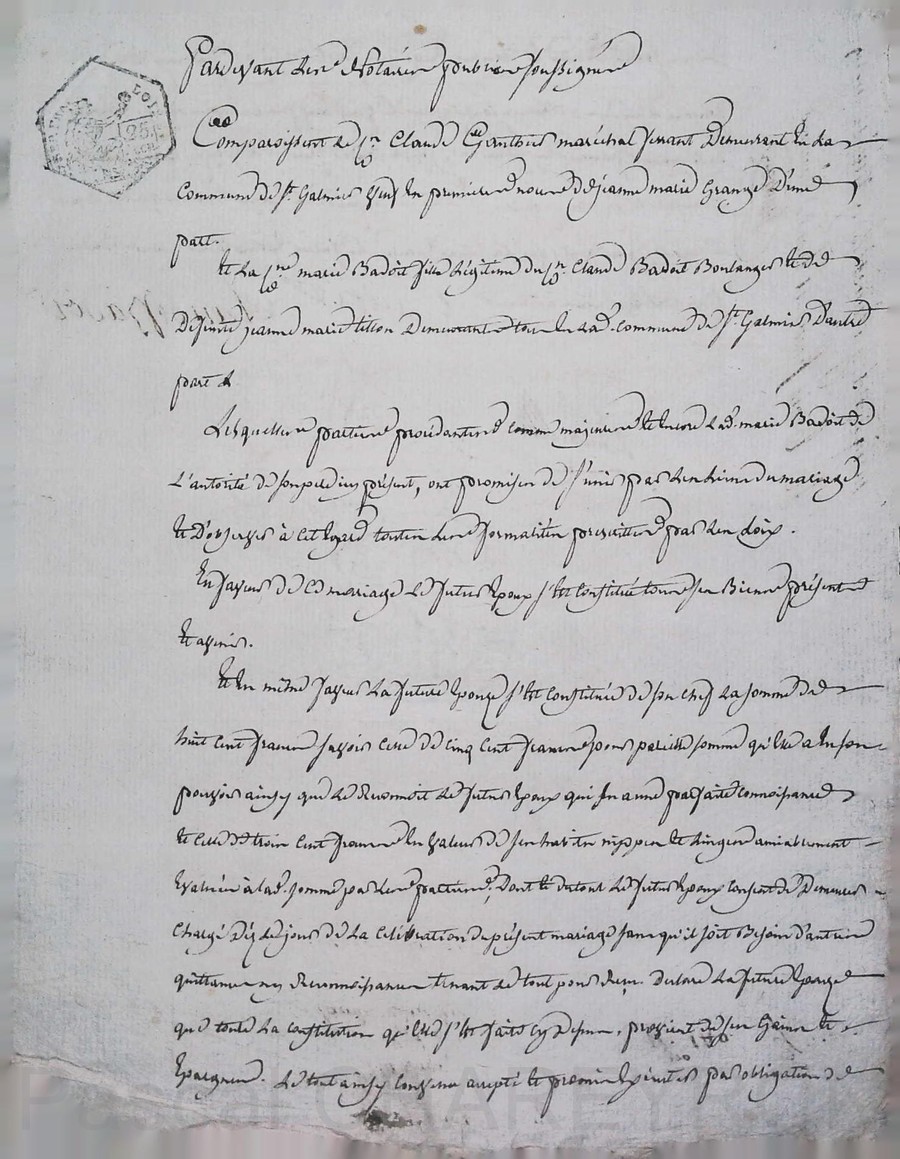 Pardevant Les Notaires publics soussignés
Comparoissent Le Cn Claude Gauthier maréchal ferant Demeurant En La
Commune de St Galmier Veuf En premieres noces de jeanne marie Grange D'une
part.
Et La Cne marie Badoit fille Légitime du Cn Claude Badoit Boulanger Et de
Defunte jeanne marie tisson Demeurants tous En lad. commune de St Galmier D'autre
part
Lesquelles parties procédantes comme majeures Et Encore Lad. marie Badoit de
L'autorité de son pere icy présent, ont promises de s'unir par Les Liens du mariage
Et D'observer à cet Egard toutes Les formalités prescrittes par Les Loix.
En faveur de Ce mariage Le futur Epoux s'est Constitué tous ses Biens présents
Et avenir.
Et En même faveur La future Epouse s'est Constituée de son chef La somme de
huit cent francs savoir celle de cinq cent francs pour pareille somme qu'Elle a En son
pouvoir ainsy que Le Reconnoit Le futur Epoux qui En a une parfaite connoissance
Et celle de trois cent francs En valeur de ses habits nippes Et Linges amiablement
Evalués à lad. somme par Les parties, Dont Et du tout Le futur Epoux consent de Demeurer
Chargé Dèz Le jour de La Celébration du présent mariage sans qu'il soit Besoin d'autres
quittances ny Reconnoissances tenant Le tout pour Reçu. Declare La future Epouse
que toute La constitution qu'Elle s'Est faite cy Dessus, provient de ses Gains Et
Epargnes. Le tout ainsy convenu accepté Et promis Exécuter par obligation de